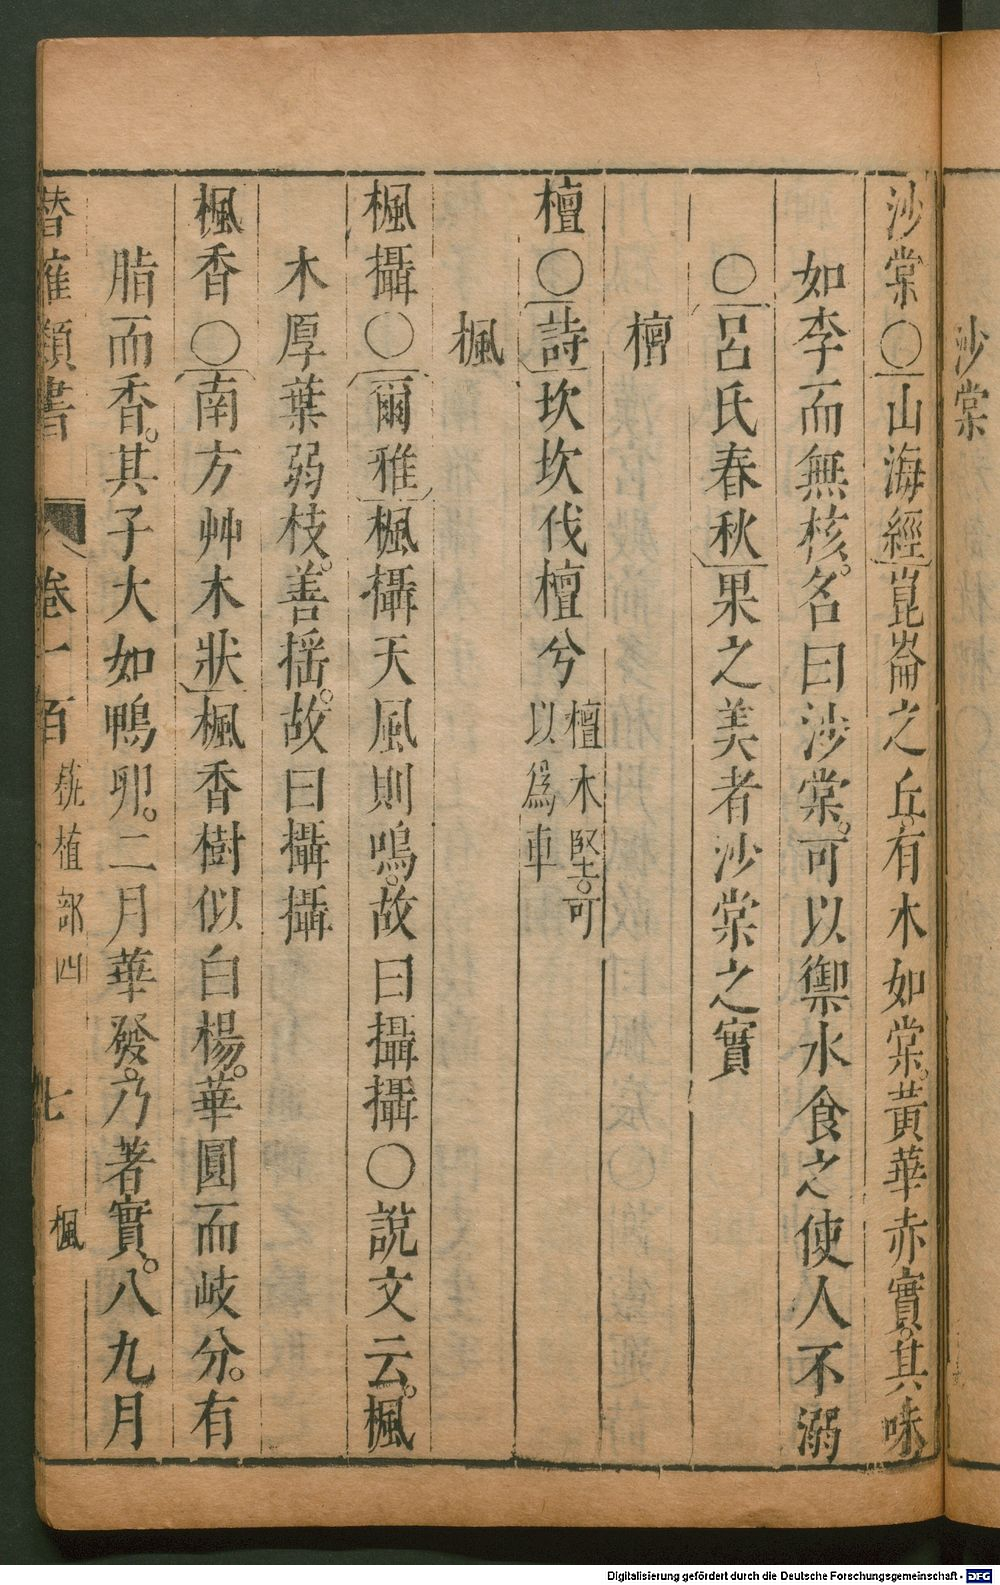 沙棠
沙棠○山海經崑崙之丘有木如棠。黃華赤實。其味
如李而無核。名曰沙棠。可以禦水食之使人不溺
○呂氏春秋果之美者沙棠之實
檀
檀○詩坎坎伐檀兮檀木堅。可以為車
楓
楓攝○爾雅楓攝天風則鳴。故曰攝攝○說文云。楓
木厚葉弱枝。善搖。故曰攝攝
楓香○南方艸木狀楓香樹似白楊。華圓而岐分。有
脂而香。其子大如鴨卵。二月華發。乃著實。八九月
潛確類書 卷一百 植部四 七 楓
Digitalisierung gefördert durch die Deutsche Forschungsgemeinschaft - DFG